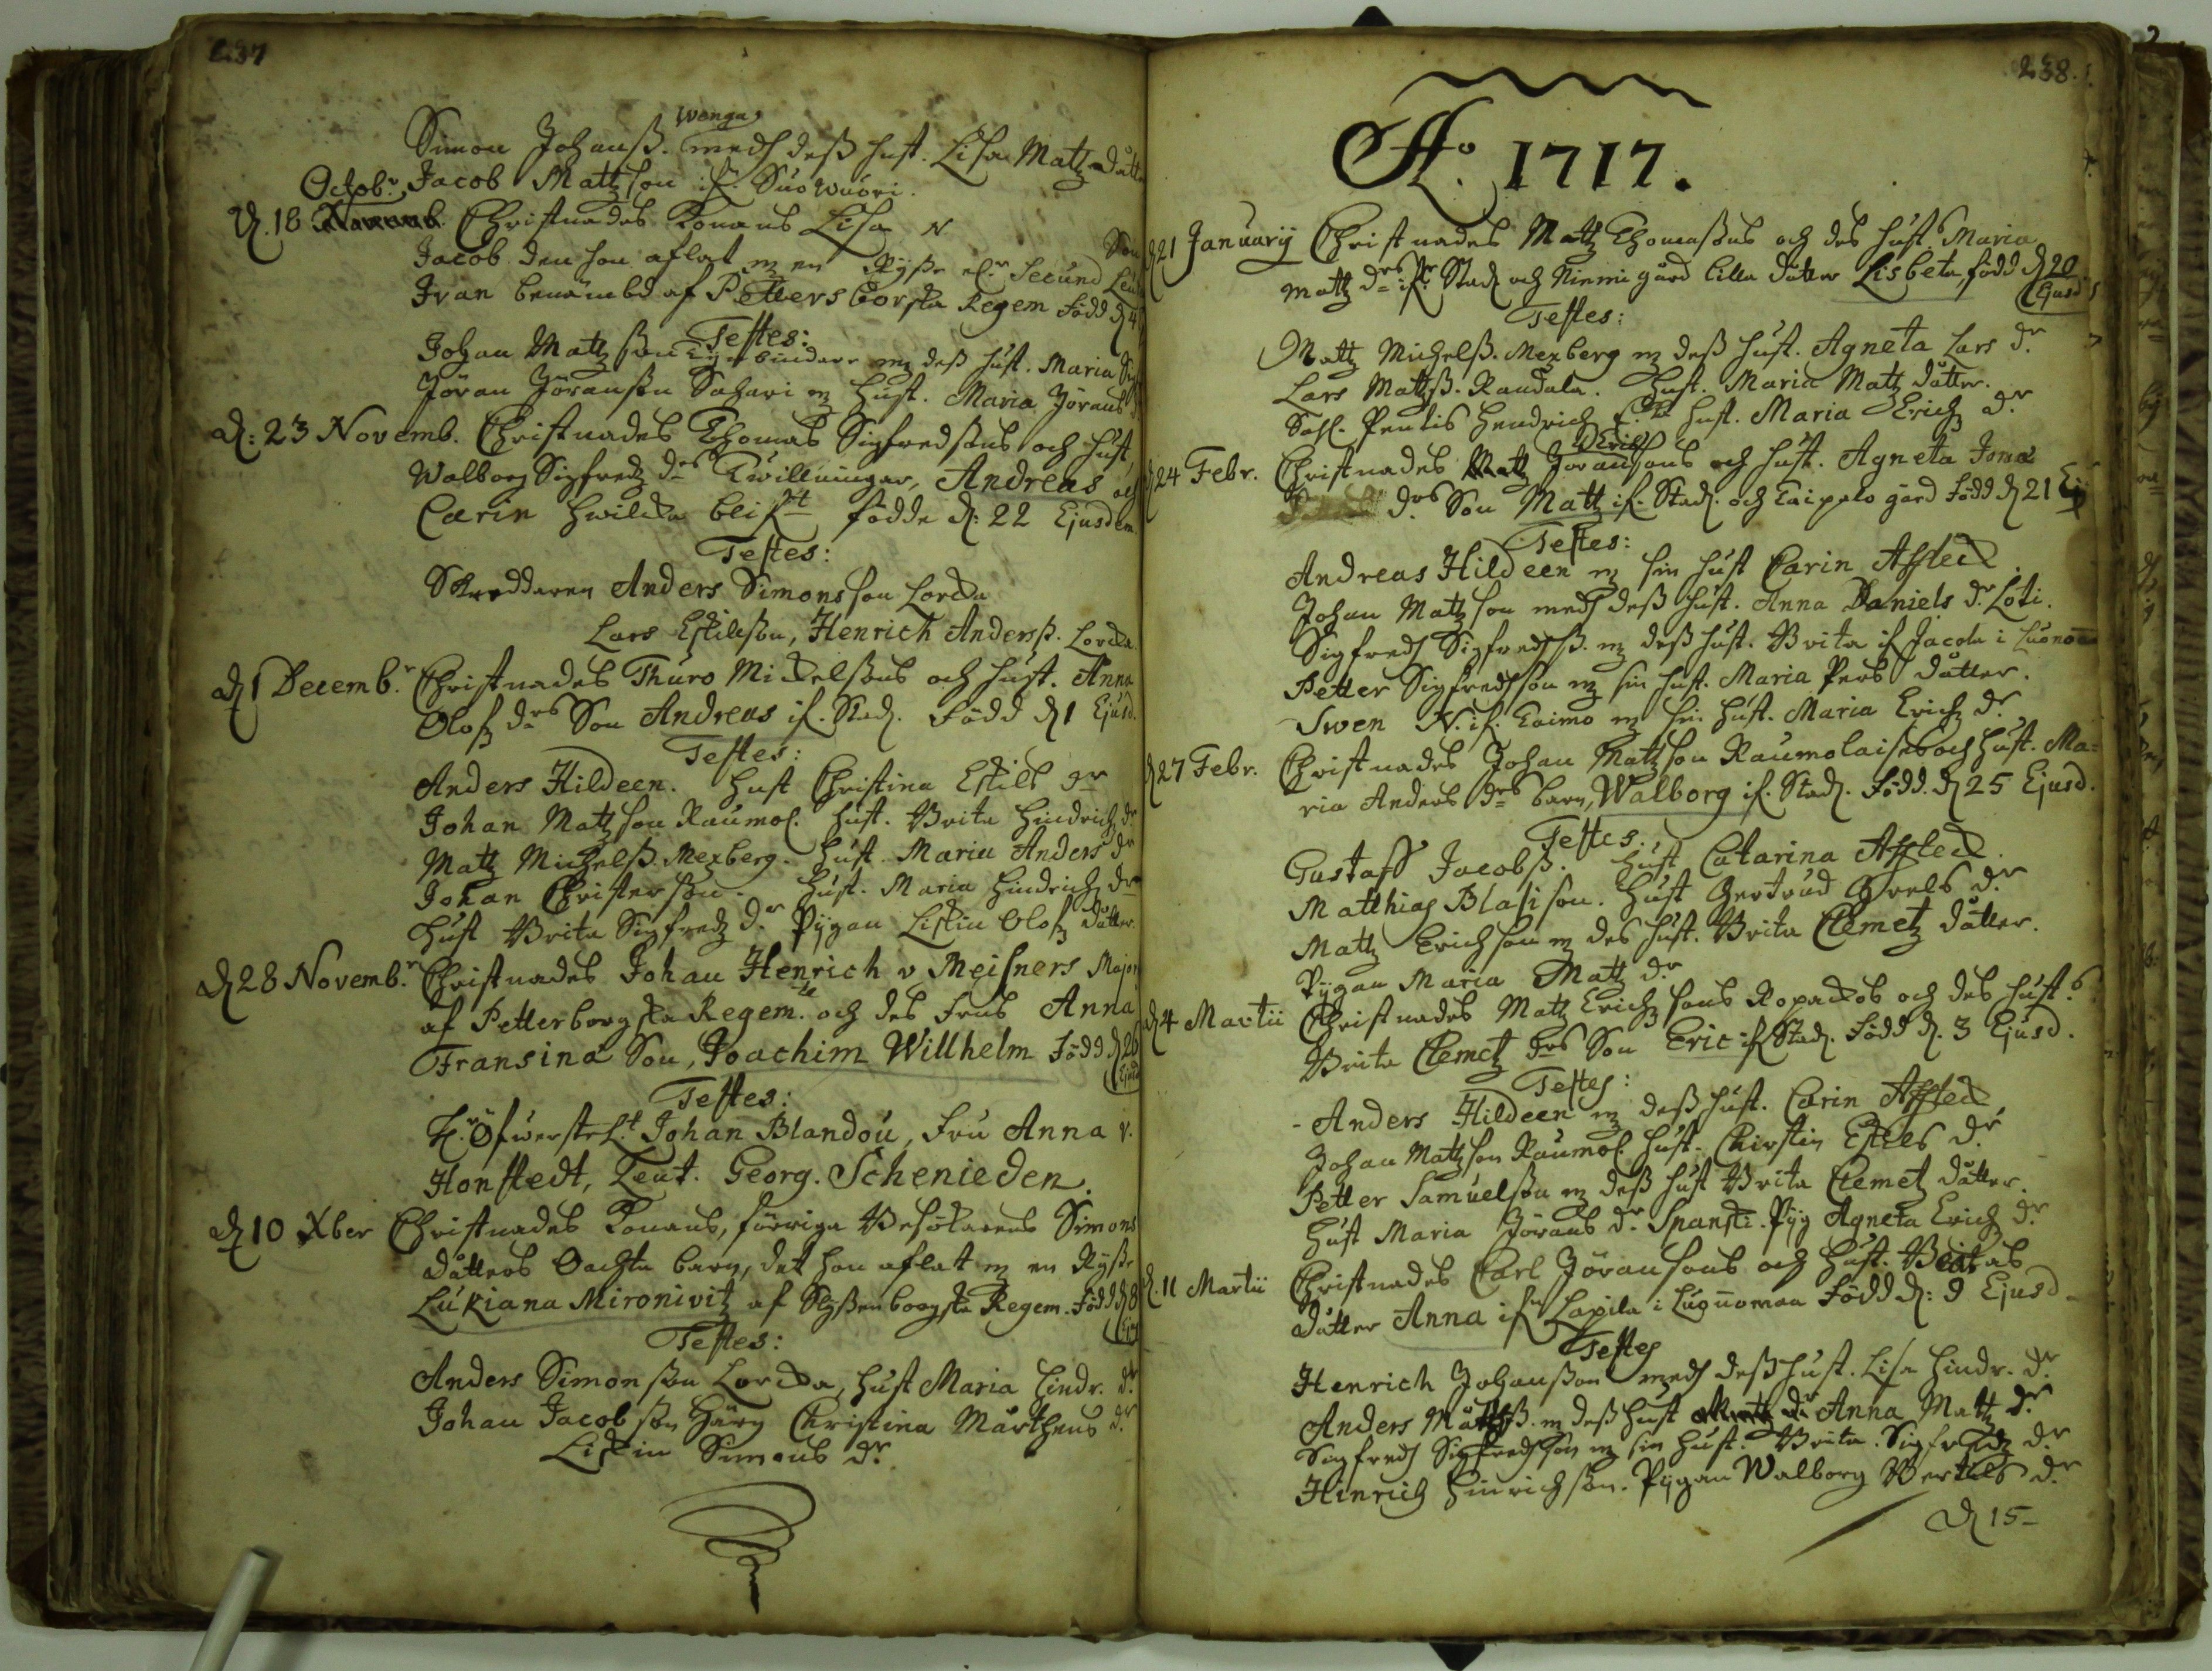 237
Wanga
Simon Johanß. medh deß hust. Lisa Matz dåtter
Jacob Mattson ifr. Suowuori.
Octobr.
d. 18 Christnades Konans Lisa N Son
Jacob den hon aflat m en Ryße Secund Leut
Ivan benämbd af Pettersborska Regem född d 4
Testes:
Johan Mattsson bindare m deß hust. Maria
Jöran Jöransson Sahari m hust. Maria Jörans
d: 23 Novemb. Christnades Thomas Sigfredssons och hust,
Walborg Sigfredz drs Twillningar, Andreas och
Carin hwilcka födde d: 22 Ejusdem.
Testes:
Skreddaren Anders Simonsson Lorcka
Lars Eskilsson, Henrich Anderss. Lorcka.
d 1 Decemb.r Christnades Thuro Mickelsons och hust. Anna
Olofz drs Son Andreas if. Stad. född d 1 Ejusd.
Testes:
Anders Hildeen. Hust Christina Eskils dr
Johan Mattson Raumol. hust. Brita Hindrichz dr
Matz Michelß. Mexberg. hust. Maria Anders dr
Johan Christersson. hust. Maria Hindrichz dr
Hust Brita Sigfredz dr. Pygan Liskin Olofz dåtter.
d 28 Novemb.r Christnades Johan Henrich v Meisners Major
af Petterborgska Regem.te och des Frus Anna
Fransina Son, Joachim Willhelm född d 26
Ejusd
Testes:
H.r Öfwerste L.t Johan Blandou, Fru Anna v.
Honstedt, Leut. Georg. Schenieden.
d 10 Xber Christnades Konans, förriga Besökarens Simons
dåtters Oächta barn, det hon aflat m en Ryße
Lukiana Mironivitz af Slyßenborgska Regem. född d 8
Ejus
Testes:
Anders Simonsson Lorcka, hust Maria Hindr. dr.
Johan Jacobsson Christina Mårthens dr.
Liskin Simons dr.
238.
Ao. 1717.
d 21 Januarij Christnades Matz Thomassons och des hust.s Maria
Matz drs ifr Stad och Niemi gård lilla dåtter Lisbeta, född d 20
Ejusd
Testes:
Matz Michelß. Mexberg m deß hust. Agneta Lars dr.
Lars Mattß. Raudala. Hust. Maria Matz dåtter.
Sahl. Pentis Hendrich hust. Maria Erich dr
Erich
d 24 Febr. Christnades Jöransons och hust. Agneta Jona
drs Son Matz if. Stad. och Caipalo gård född d 21 Ej
Testes:
Andreas Hildeen m sin hust Carin Affleck.
Johan Mattson medh deß hust. Anna Daniels dr. Loti.
Sigfred Sigfredsß. m deß hust. Brita if Jacola i Luonoma
Petter Sigfredsson m sin hust. Maria Pers dåtter.
Swen N. if. Caimo m sin hust. Maria Erichz dr.
d 27 Febr. Christnades Johan Mattson Raumolaises och hust. Ma-
ria Anders drs barn, Walborg if. Stad. född. d 25 Ejusd.
Testes.
Gustaff Jacobß. Hust Catarina Affleck.
Matthias Blasison. hust Gertrud Grels dr.
Matz Erichson m des hust. Brita Clemetz dåtter.
Pygan Maria Matz dr.
d 4 Martii Christnades Matz Erichz sons Ropackos och des hust.s
Brita Clemetz drs Son Eric if Stad. född d. 3 Ejusd.
Testes:
Anders Hildeen m deß hust. Carin Affleck.
Johan Mattson Raumol. hust. Chirstin Eskels dr.
Petter Samuelson m deß hust Brita Clemetz dåtter.
Hust Maria Jörans dr. Spanski. Pyg Agneta Erichz dr.
d. 11 Martii Christnades Carl Jöransons och hust. Beatas
dåtter Anna ifn Lapila i Luonoman född d: 9 Ejusd.
Testes
Henrich Johansson medh deß hust. Lisa Hindr. dr.
Anders Mattß. m deß hust Anna Matz dr.
Sigfred Sigfredsson m sin hust. Brita Sigfredz dr.
Hinrich Hinrichson. Pygan Walborg Bertils dr.
d 15-